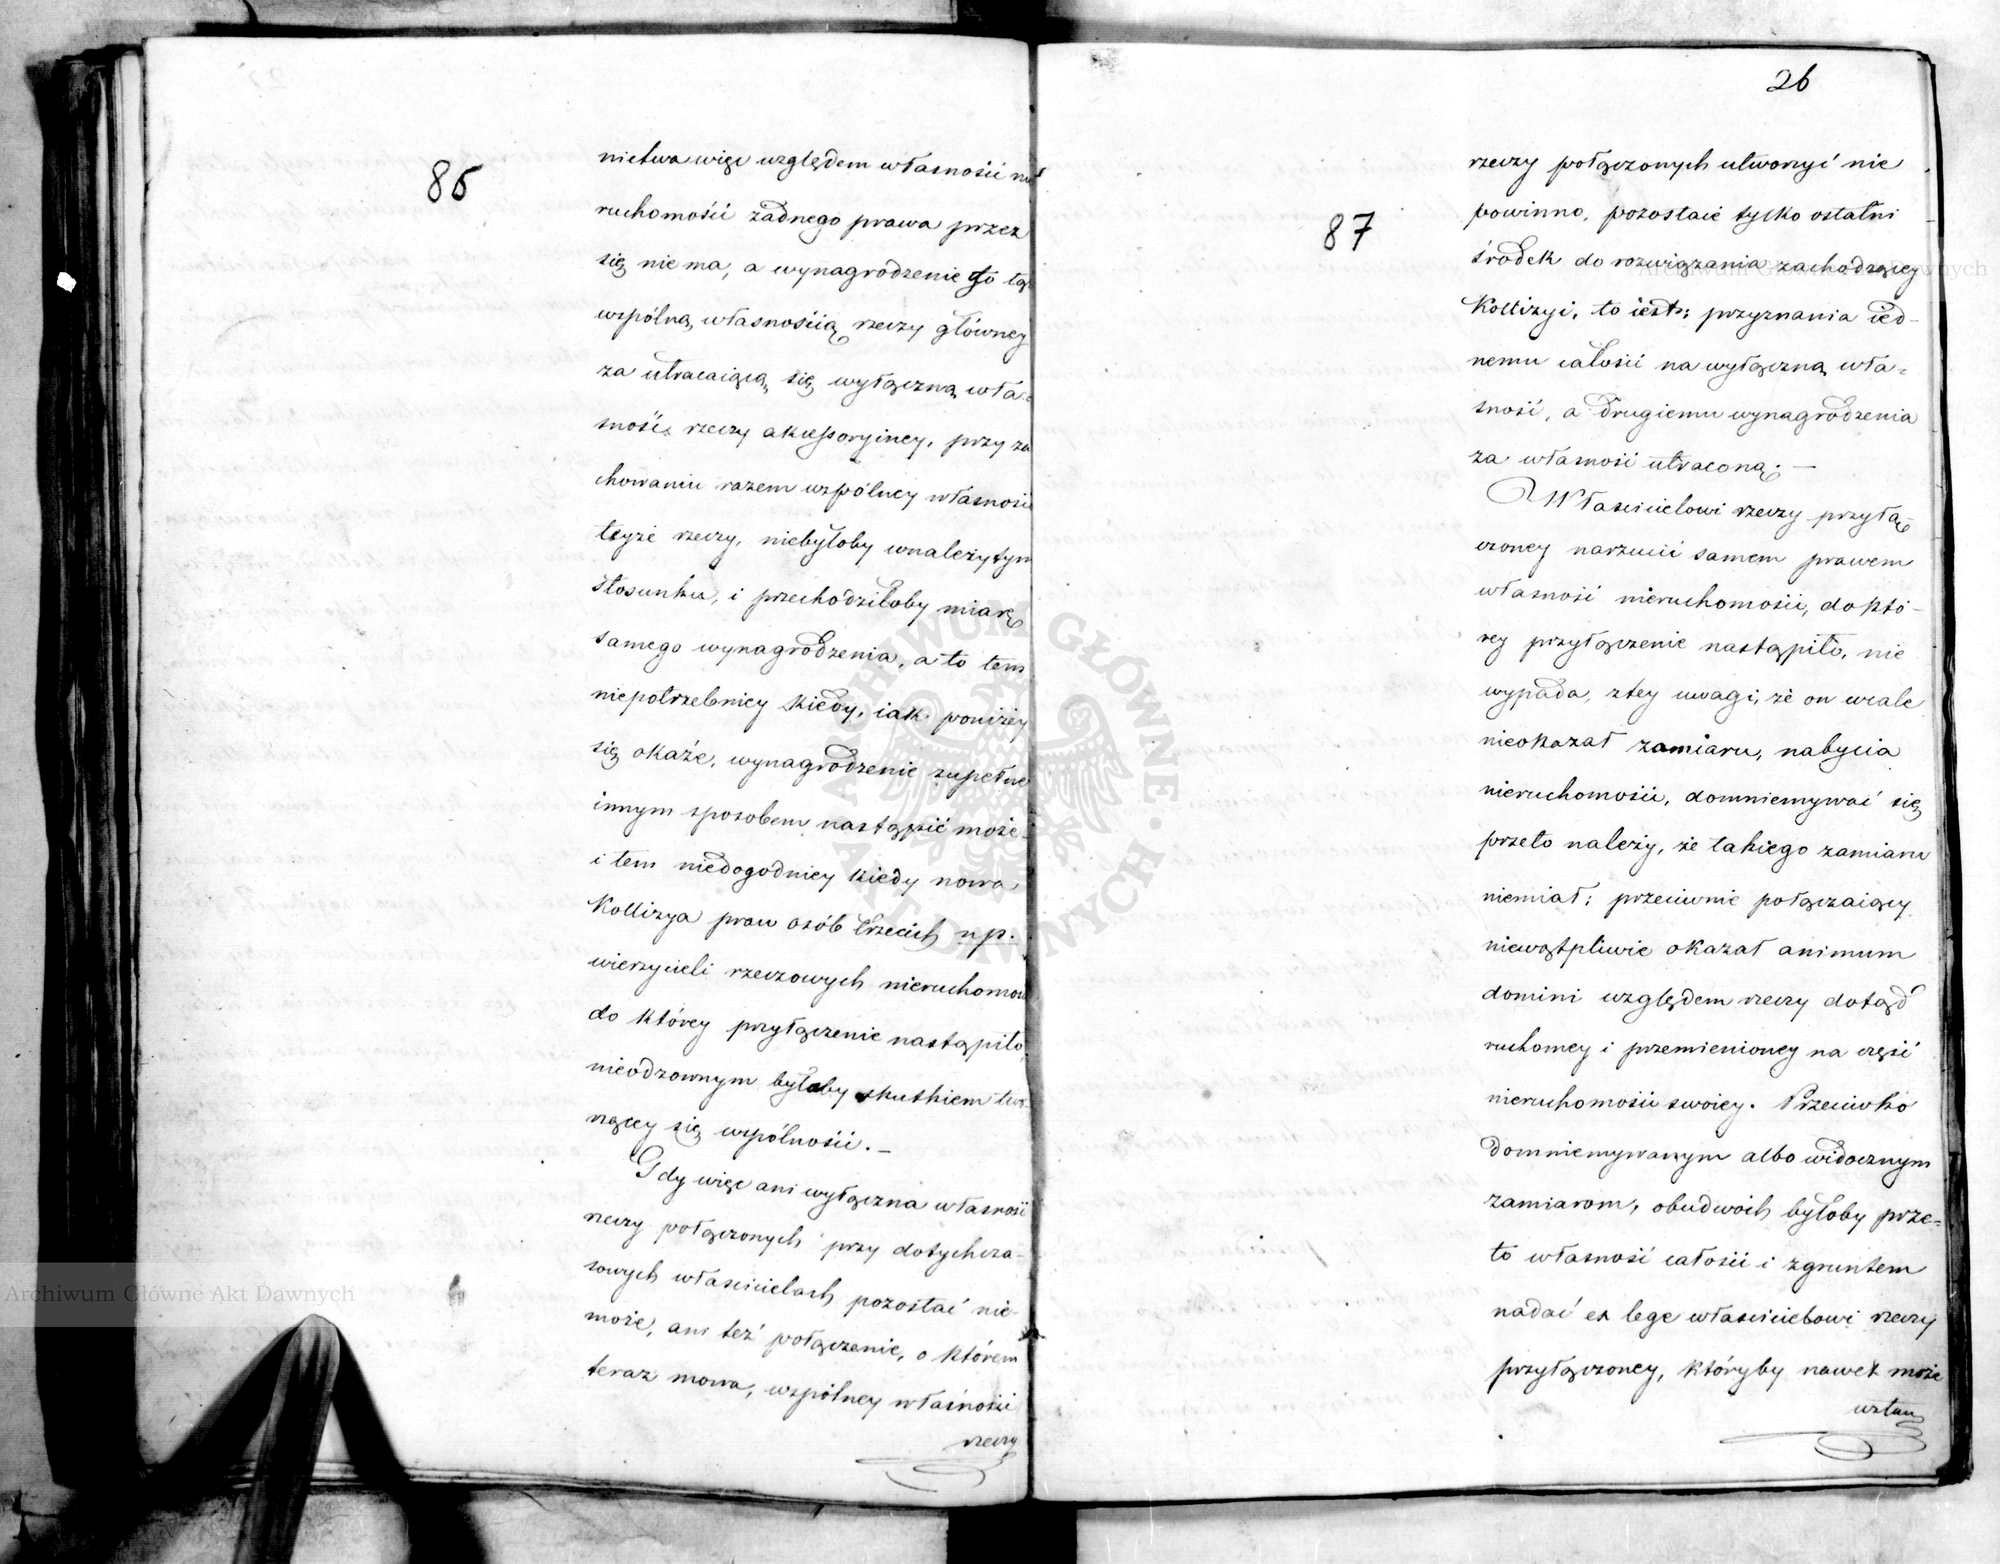 86
nictwa więc względem własności nie
ruchomości żadnego prawa przez
się nie ma, a wynagrodzenie go tą
wspólną własnością rzeczy główney
za utracaiącą się wyłączną wła-
sność rzeczy akcessoryiney, przy za
chowaniu razem wspólney własności
teyże rzeczy, niebyłoby wnależytym
stosunku, i przechodziłoby miarę
samego wynagrodzenia, a to tem
niepotrzebniey kiedy, iak poniżey
się okaże, wynagrodzenie zupełne
innym sposobem nastąpić może
i tem niedogodniey kiedy nowa
Kollizya praw osób trzecich np.
wierzycieli rzeczowych nieruchomości
do którey przyłączenie nastąpiło,
nieodzownym byłoby skutkiem two-
rzącey się wspólności. –
Gdy więc ani wyłączna własność
rzeczy połączonych przy dotychcza-
sowych właścicielach pozostać nie
może, ani też połączenie, o którem
teraz mowa, wspólney własności
rzeczy
26
87
rzeczy połączonych utworzyć nie
powinno, pozostaie tylko ostatni
środek do rozwiązania zachodzącey
Kollizyi, to iest: przyznania ied-
nemu całości na wyłączną wła-
sność, a drugiemu wynagrodzenia
za własność utraconą. –
Właścicielowi rzeczy przyłą-
czoney narzucić samem prawem
własność nieruchomości, do któ-
rey przyłączenie nastąpiło, nie
wypada, z tey uwagi, że on wcale
nieokazał zamiaru, nabycia
nieruchomości, domniemywać się
przeto należy, że takiego zamiaru
niemiał; przeciwnie połączaiący
niewątpliwie okazał animum
domini względem rzeczy dotąd
ruchomey i przemienioney na część
nieruchomości swoiey. Przeciwko
domniemywanym albo widocznym
zamiarom, obudwóch byłoby prze-
to własność całości i zgruntem
nadać ex lege właścicielowi rzeczy
przyłączoney, któryby nawet może
Archiwum Główne Akt Dawnych
Archiwum Główne Akt Dawnych
ARCHIWUM GŁÓWNE AKT DAWNYCH